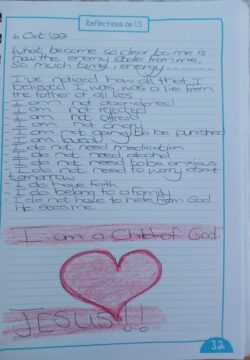 Reflections on 15
6 Oct '22
What became so clear to me is
how the enemy stole from me,
so much time, energy
I've noticed how all that I
believed I was, was a lie from
the father of all lies
I am not abandoned
I am not rejected
I am not afraid
I am not angry
I am not going to be punished
I am loved
I do not need medication
I do not need alcohol
I do not need to be anxious
I do not need to worry about
tomorrow
I do have faith
I do belong to a family
I do not have to hide from God
He sees me
I am a Child of God
JESUS!!
32